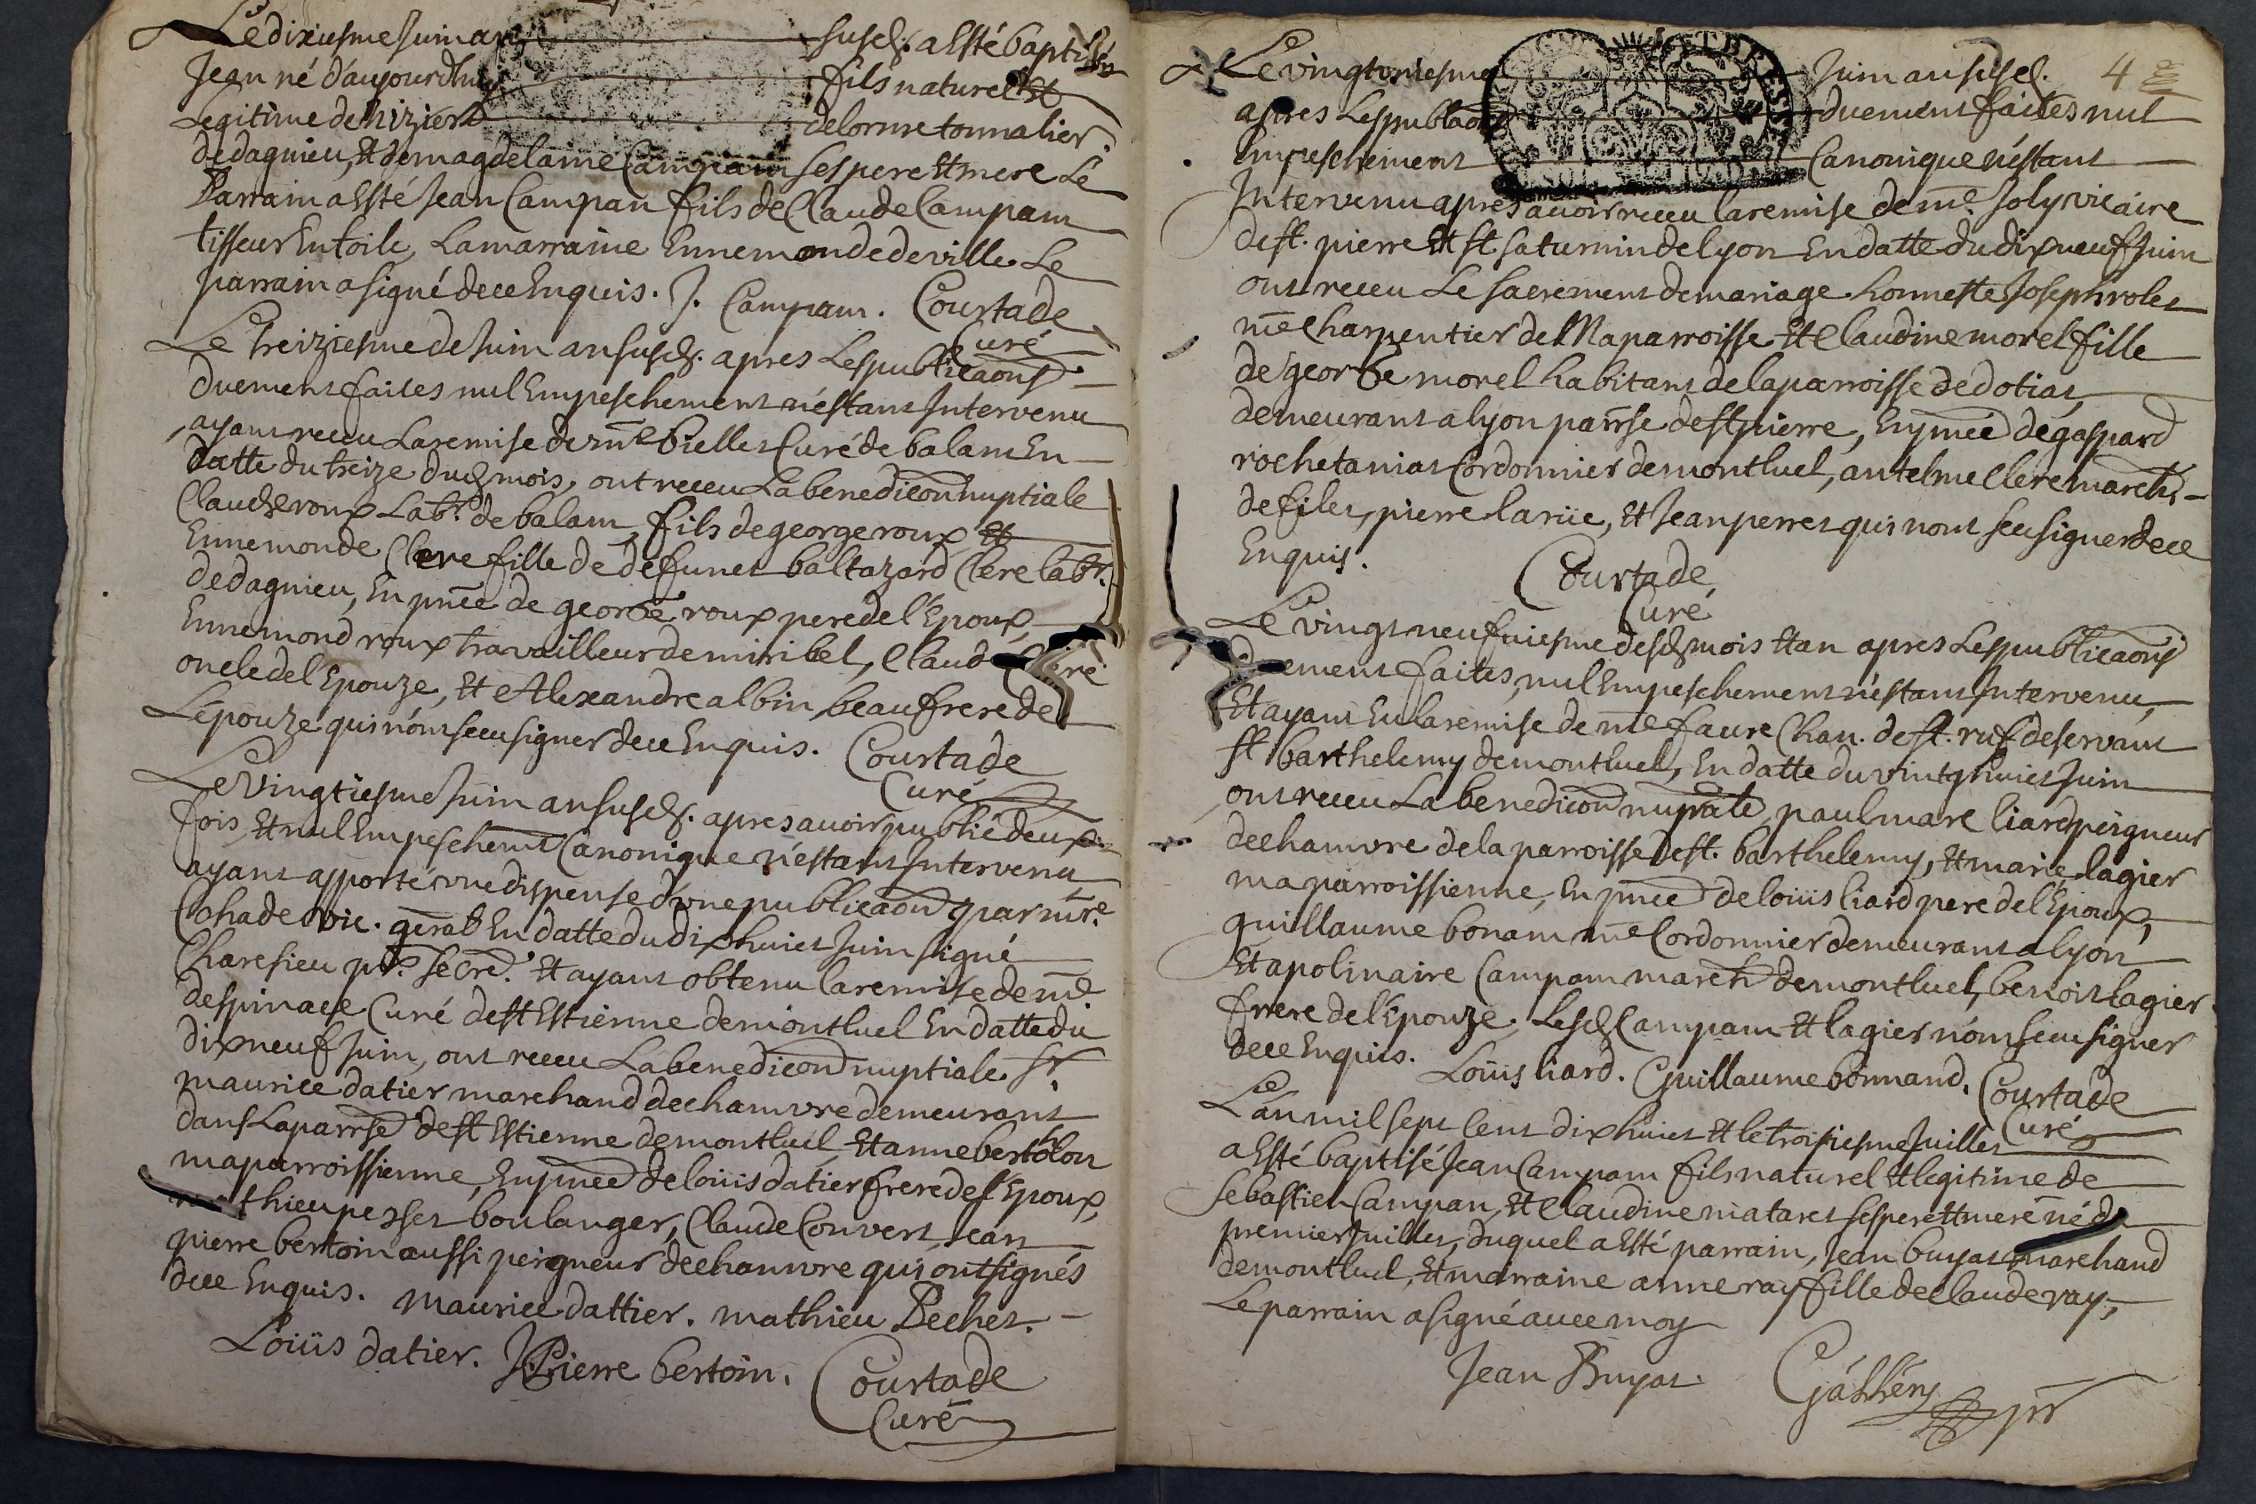 Le dixiesme Juin an susd. a esté baptisé
Jean né d'aujourdhuy fils naturel et
Legitime de nizier delorme tonnalier
de dagnieu, et de magdelaine Campam ses pere et mere Le
Parrain a esté Jean Campan fils de Claude Campam
tisseur En toile, La marraine Ennemonde deville Le
parrain a signé de ce Enquis. J. Campam. Courtade
Curé
Le treiziesme de Juin an susd. apres Les publicaons
duement faites nul Empeschement n'estant Intervenu
ayant receu La remise de me bielles Curé de balam En
datte du treize dud mois, ont receu La benediction nuptiale
Claude roux Labr. de balam, fils de george roux et
Ennemonde Clere fille de defunct baltazard Clere labr.
de dagnieu, En pnce de george roux pere de l'Epoux,
Ennemond roux travailleur de miribel, Claude Clere
oncle de l'Epouze, et Alexandre albin beaufrere de
L'épouze qui n'ont sceu signer de ce Enquis. Courtade
Curé
Le vingtiesme Juin an susd. apres avoir publié deux
fois, et nul Empeschemt Canonique n'estant Intervenu
ayant apporté une dispense d'une publicaon par mre
Cohade vic. genal En datte du dixhuict Juin signé
Charesieu pbr. secre. et ayant obtenu la remise de me
despinace Curé de st Estienne de montluel En datte du
dixneuf Juin, ont receu La benedicon nuptiale. sr.
maurice datier marchand de chamvre demeurant
dans La parrse de st Estienne de montluel et anne bertholon
ma parroissienne, En pnce de loüis datier frere de l'Epoux,
mathieu pesset boulanger, Claude Convert, Jean
pierre bertoin aussi peigneur de chamvre qui ont signés
de ce Enquis. maurice dattier. mathieu Pechet.
Loüis datier. J Pierre bertoin. Courtade
Curé
4
Le vingtuniesme Juin an susd.
apres Les publicaons duement faites nul
Empeschement Canonique n'estant
Intervenu apres avoir receu la remise de me. Joly vicaire
de st. pierre et st saturnin de lyon En datte du dixneuf Juin
ont receu Le sacrement de mariage honneste Joseph rolet
me Charpentier de Ma parroisse et Claudine morel fille
de george morel habitant de la parroisse de dotias,
demeurant a lyon parrse de st pierre, En pnce de gaspard
rochetanias Cordonnier de montluel, antelme Clere marcht.
de filet, pierre larüe, et Jean perret qui n'ont sceu signer de ce
Enquis. Courtade
Curé
Le vingt neufviesme desd mois et an apres Les publicaons
duement faites, nul Empeschement n'estant Intervenu,
Et ayant Eu la remise de me faure Chan. de st. ruf deservant
st barthelemy de montluel, En datte du vintg huict Juin
ont receu La benedicon nuptiale, paul marc liard peigneur
de chamvre de la parroisse de st. barthelemy, et marie lagier
ma parroissienne, En pnce de loüis liard pere de l'Epoux,
guillaume bonam me Cordonnier demeurant a lyon
Et apolinaire Campam march de montluel, benoist lagier
frere de l'Epouze. Lesd Campam et lagier n'ont sceu signer
de ce Enquis. Loüis liard. Guillaume bonnand. Courtade
Curé
L'an mil sept Cent dixhuict et le troisiesme Juillet
a Esté baptisé Jean Campam fils naturel et legitime de
sebastien Campan, et Claudine mataret ses pere et mere né du
premier Juillet, duquel a Esté parrain, Jean buyat marchand
de montluel, et marraine anne ray fille de claude ray,
Le parrain a signé avec moy
Jean Buyat.